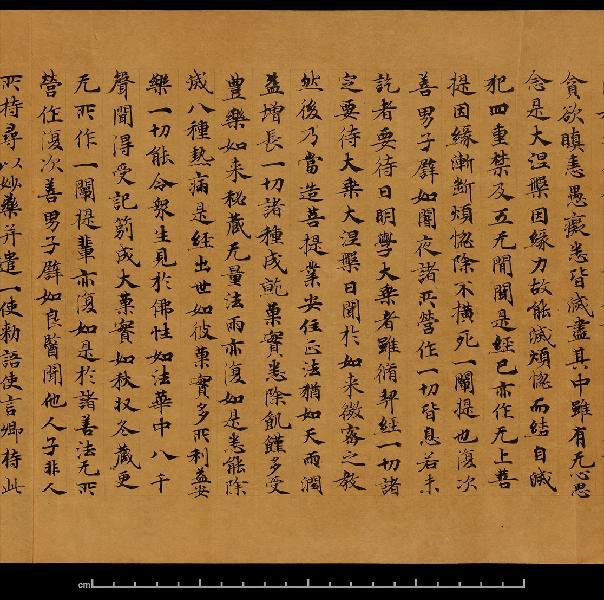 貪欲瞋恚愚癡悉皆滅盡其中雖有无心思
念是大涅槃因緣力故能滅煩惱而結自滅
犯四重禁及五无間聞是經已亦作无上菩
提因緣漸斷煩惱除不橫死一闡提也復次
善男子譬如闇夜諸所營作一切皆息若未
訖者要待日明學大乘者雖脩契經一切諸
定要待大乘大涅槃日聞於如來微密之教
然後乃當造菩提業安住正法猶如天雨潤
益增長一切諸種成就菓實悉除飢饉多受
豊樂如來秘藏无量法雨亦復如是悉能除
滅八種熱病是經出世如彼菓實多所利益安
樂一切能令衆生見於佛性如法華中八千
聲聞得受記莂成大菓實如秋収冬藏更
无所作一闡提輩亦復如是於諸善法无所
營作復次善男子譬如良醫聞他人子非人
所持尋以妙藥并遣一使勑語使言卿持此